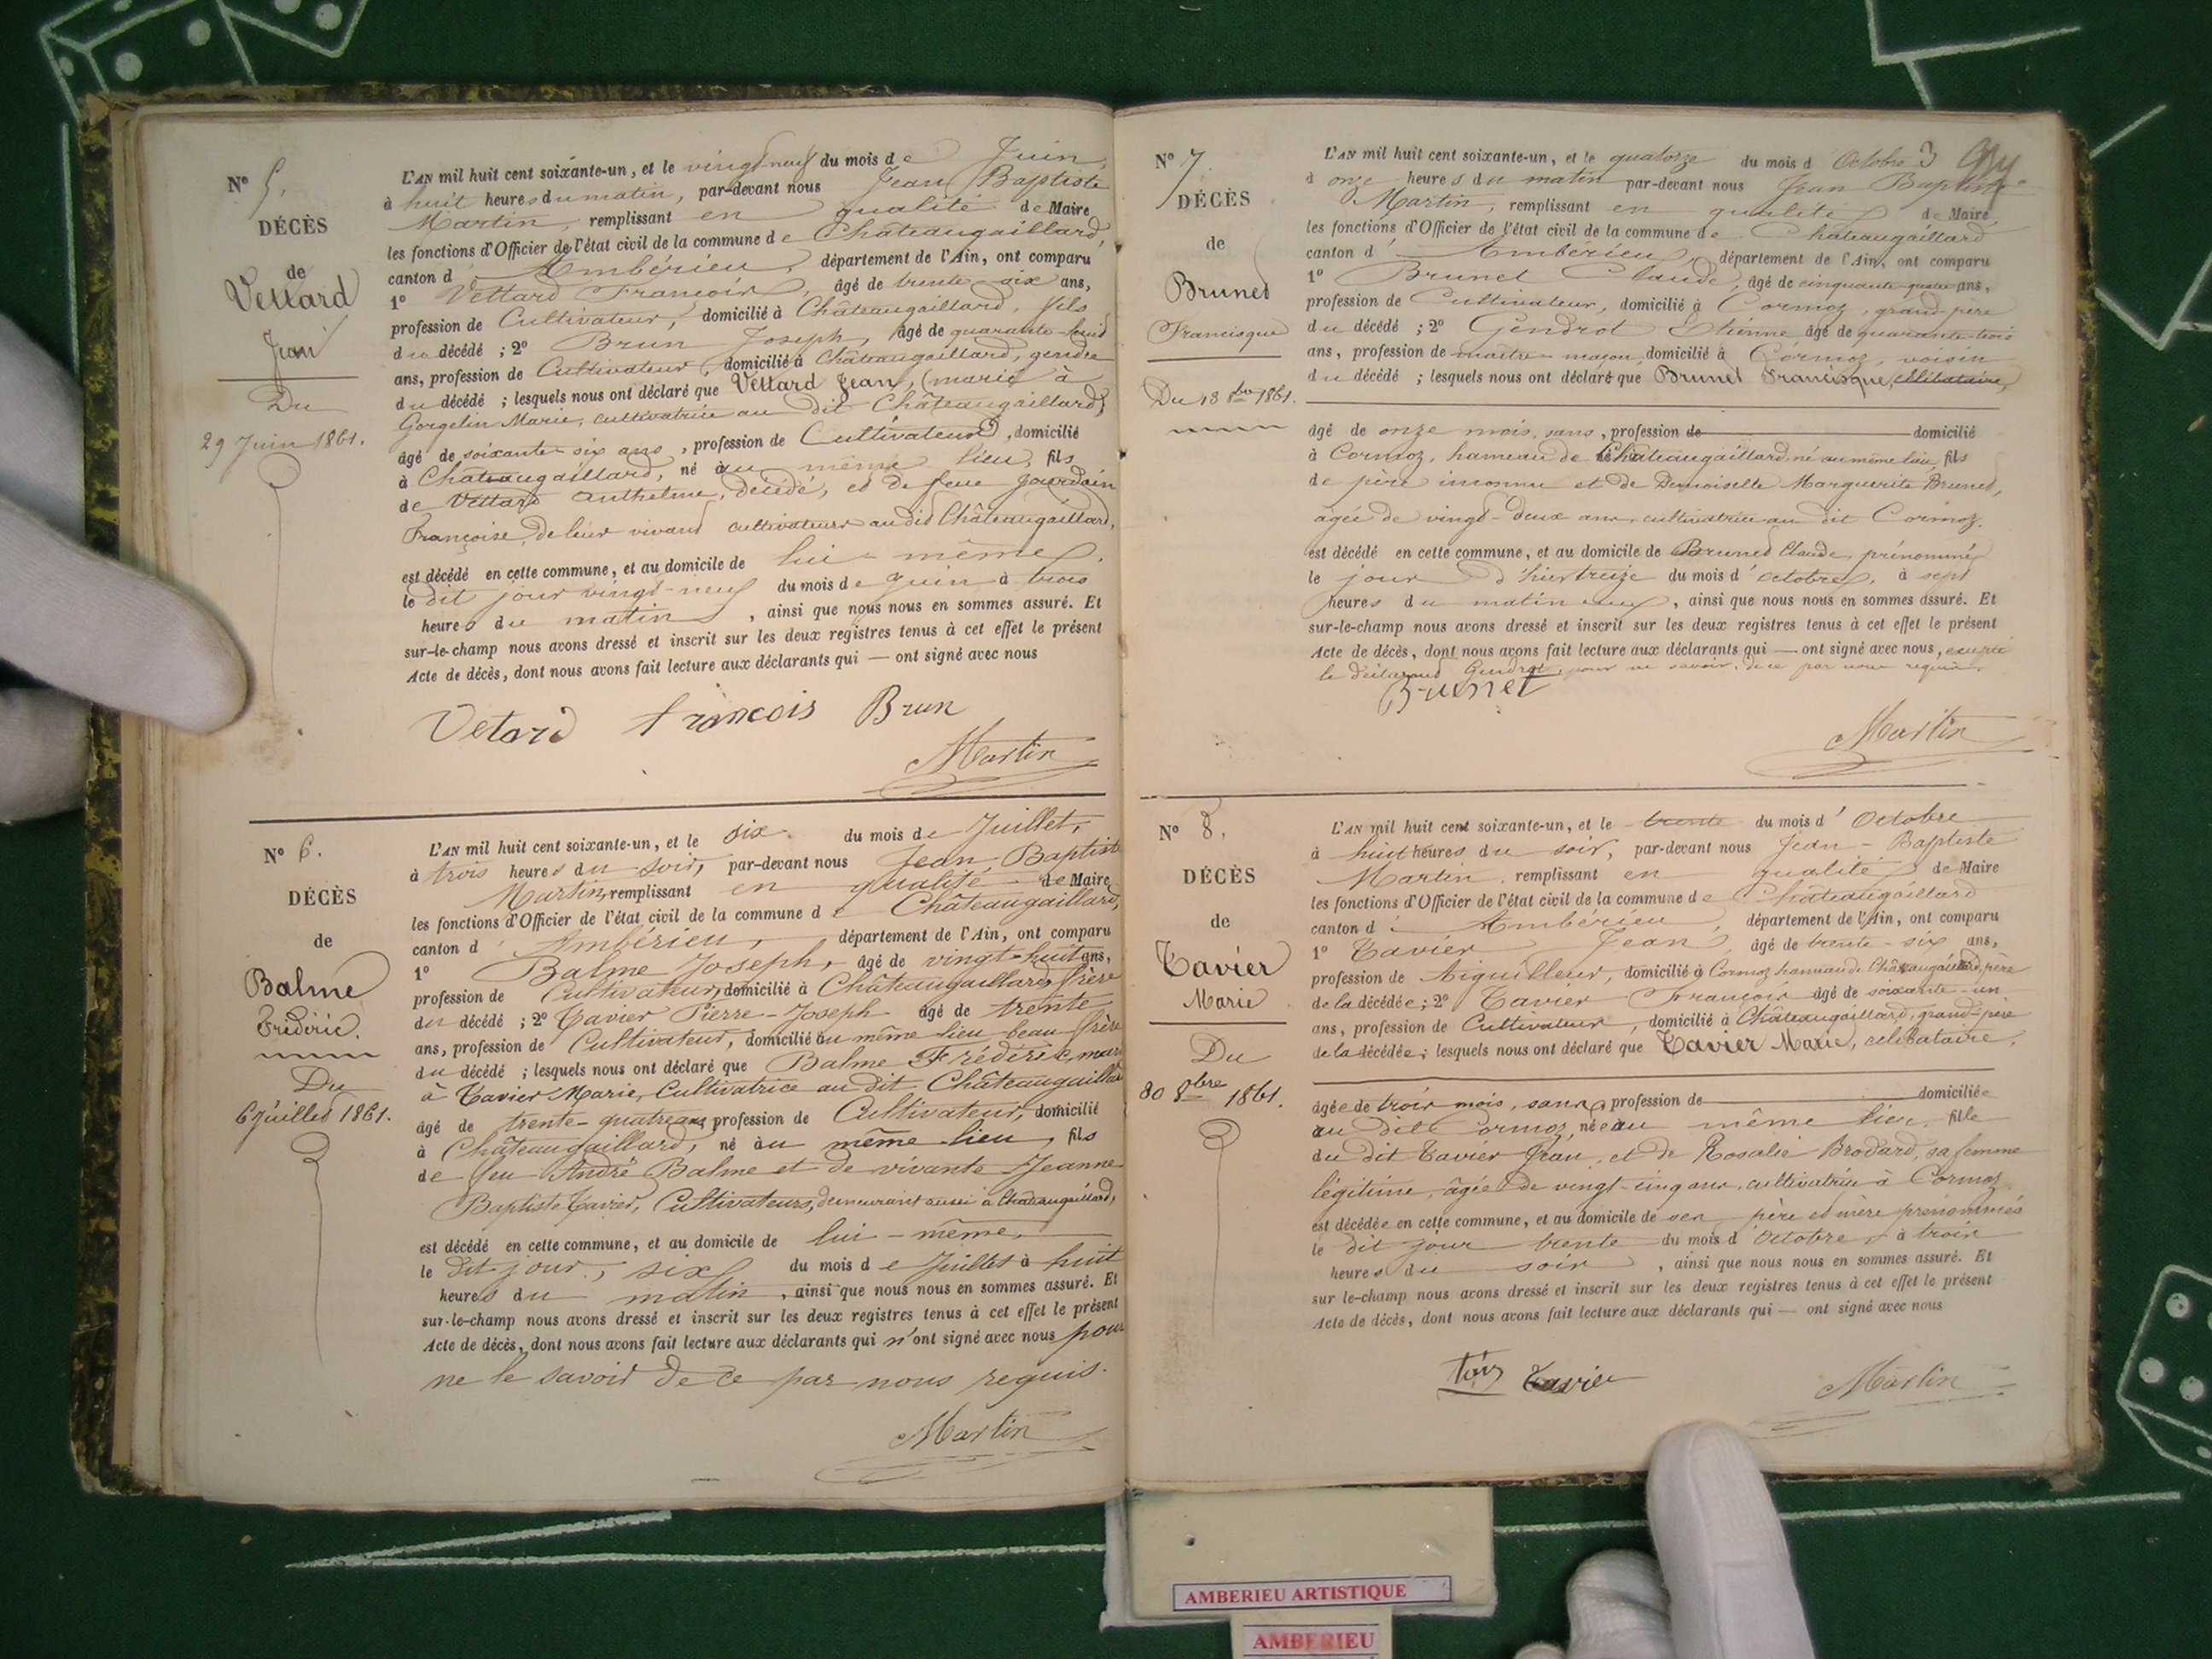 N° 5.
DÉCÈS
de
Vettard
Jean
Du
29 Juin 1861.
L'AN mil huit cent soixante-un, et le vingt-neuf du mois de Juin,
à huit heures du matin, par-devant nous Jean Baptiste
Martin, remplissant en qualité de Maire
les fonctions d'Officier de l'état civil de la commune de Châteaugaillard,
canton d'Ambérieu, département de l'Ain, ont comparu
1° Vettard François, âgé de trente six ans,
profession de Cultivateur, domicilié à Châteaugaillard, fils
du décédé ; 2° Brun Joseph, âgé de quarante-huit
ans, profession de Cultivateur, domicilié à Châteaugaillard, gendre
du décédé ; lesquels nous ont déclaré que Vettard Jean, (marié à
Gorgelin Marie, cultivatrice au dit Châteaugaillard)
âgé de soixante six ans, profession de Cultivateur, domicilié
à Châteaugaillard, né au même lieu, fils
de Vettard Anthelme, décédé, et de feue Jourdain
Françoise, de leur vivant cultivateurs au dit Châteaugaillard,
est décédé en cette commune, et au domicile de lui-même,
le dit jour vingt-neuf du mois de Juin à trois
heures du matin, ainsi que nous nous en sommes assuré. Et
sur-le-champ nous avons dressé et inscrit sur les deux registres tenus à cet effet le présent
Acte de décès, dont nous avons fait lecture aux déclarants qui — ont signé avec nous
Vetard francois Brun
Martin
N° 6.
DÉCÈS
de
Balme
Frédéric.
Du
6 Juillet 1861.
L'AN mil huit cent soixante-un, et le six du mois de Juillet,
à trois heures du soir, par-devant nous Jean Baptiste
Martin, remplissant en qualité de Maire
les fonctions d'Officier de l'état civil de la commune de Châteaugaillard,
canton d'Ambérieu, département de l'Ain, ont comparu
1° Balme Joseph, âgé de vingt-huit ans,
profession de Cultivateur, domicilié à Châteaugaillard, frère
du décédé ; 2° Tavier Pierre-Joseph âgé de trente
ans, profession de Cultivateur, domicilié au même lieu beau frère
du décédé ; lesquels nous ont déclaré que Balme Frédéric, marié
à Tavier Marie, Cultivatrice au dit Châteaugaillard
âgé de trente-quatre ans profession de Cultivateur, domicilié
à Châteaugaillard, né au même lieu, fils
de feu André Balme et de vivante Jeanne
Baptiste Tavier, Cultivateurs, demeurant aussi à Châteaugaillard,
est décédé en cette commune, et au domicile de lui-même,
le dit jour, six du mois de Juillet à huit
heures du matin, ainsi que nous nous en sommes assuré. Et
sur-le-champ nous avons dressé et inscrit sur les deux registres tenus à cet effet le présent
Acte de décès, dont nous avons fait lecture aux déclarants qui n'ont signé avec nous pour
ne le savoir de ce par nous requis.
Martin
3
N° 7.
DÉCÈS
de
Brunet
Francisque
Du 13 8bre 1861.
L'AN mil huit cent soixante-un, et le quatorze du mois d Octobre
à onze heures du matin par-devant nous Jean Baptiste
Martin, remplissant en qualité de Maire
les fonctions d'Officier de l'état civil de la commune de Châteaugaillard
canton d'Ambérieu, département de l'Ain, ont comparu
1° Brunet Claude, âgé de cinquante-quatre ans,
profession de Cultivateur, domicilié à Cormoz, grand-père
du décédé ; 2° Gendrot Etienne âgé de quarante-trois
ans, profession de maître-maçon, domicilié à Cormoz, voisin
du décédé ; lesquels nous ont déclaré que Brunet Francisque, célibataire,
âgé de onze mois, sans, profession de domicilié
à Cormoz, hameau de Châteaugaillard, né au même lieu, fils
de père inconnu et de Demoiselle Marguerite Brunet,
âgée de vingt-deux ans, cultivatrice au dit Cormoz.
est décédé en cette commune, et au domicile de Brunet Claude, prénommé
le jour d'hier treize du mois d'octobre, à sept
heures du matin, ainsi que nous nous en sommes assuré. Et
sur-le-champ nous avons dressé et inscrit sur les deux registres tenus à cet effet le présent
Acte de décès, dont nous avons fait lecture aux déclarants qui — ont signé avec nous, excepté
le déclarant Gendrot, pour ne savoir, de ce par nous requis.
Brunet
Martin
N° 8.
DÉCÈS
de
Tavier
Marie
Du
30 8bre 1861.
L'AN mil huit cent soixante-un, et le trente du mois d'Octobre
à huit heures du soir, par-devant nous Jean-Baptiste
Martin, remplissant en qualité de Maire
les fonctions d'Officier de l'état civil de la commune de Châteaugaillard
canton d'Ambérieu, département de l'Ain, ont comparu
1° Tavier Jean, âgé de trente-six ans,
profession de Aiguilleur, domicilié à Cormoz hameau de Châteaugaillard, père
de la décédée ; 2° Tavier François âgé de soixante-un
ans, profession de Cultivateur, domicilié à Châteaugaillard, grand-père
de la décédée ; lesquels nous ont déclaré que Tavier Marie, célibataire,
âgée de trois mois, sans profession de domiciliée
au dit Cormoz, née au même lieu, fille
du dit Tavier Jean, et de Rosalie Brodard, sa femme
légitime, âgée de vingt-cinq ans, cultivatrice à Cormoz
est décédée en cette commune, et au domicile de ses père et mère prénommés
le dit jour trente du mois d'Octobre, à trois
heures du soir, ainsi que nous nous en sommes assuré. Et
sur le-champ nous avons dressé et inscrit sur les deux registres tenus à cet effet le présent
Acte de décès, dont nous avons fait lecture aux déclarants qui — ont signé avec nous
Tavier
Martin
AMBERIEU ARTISTIQUE
AMBERIEU